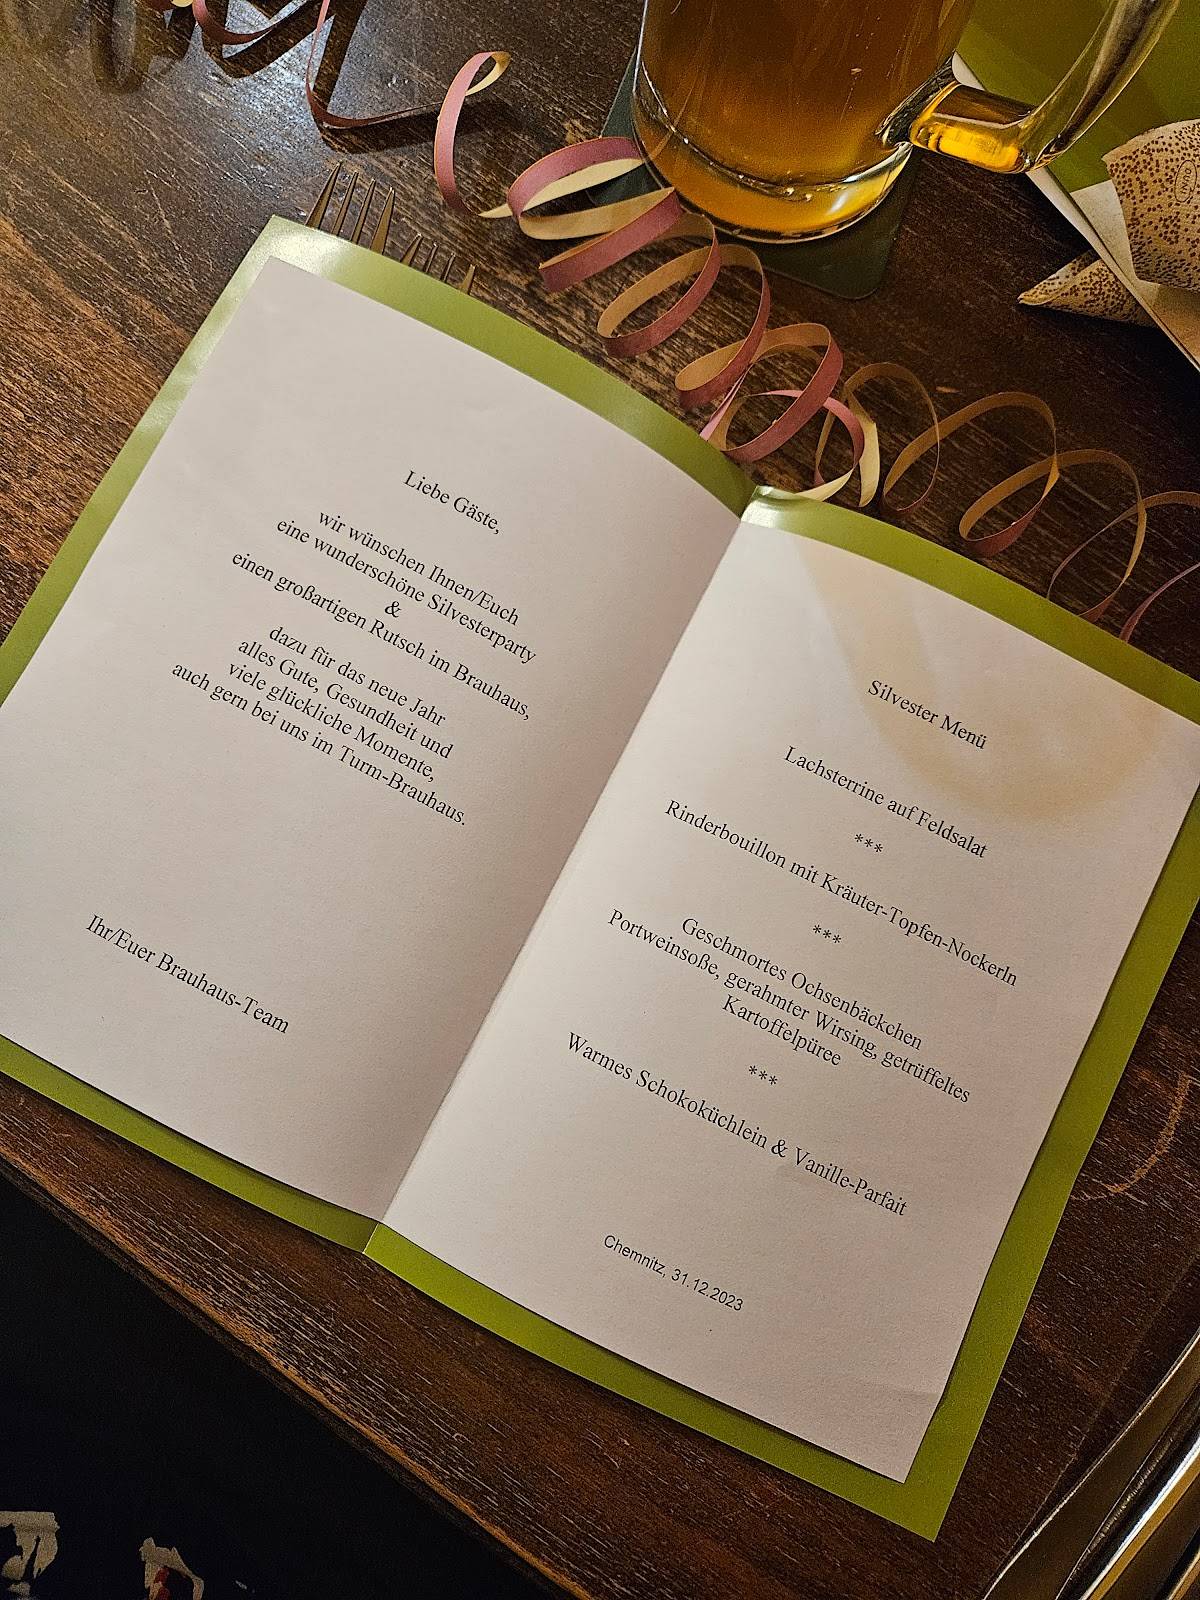 Liebe Gäste,
wir wünschen Ihnen/Euch
eine wunderschöne Silvesterparty
&
einen großartigen Rutsch im Brauhaus,
dazu für das neue Jahr
alles Gute, Gesundheit und
viele glückliche Momente,
auch gern bei uns im Turm-Brauhaus.
Ihr/Euer Brauhaus-Team
Silvester Menü
Lachsterrine auf Feldsalat
***
Rinderbouillon mit Kräuter-Topfen-Nockerln
***
Geschmortes Ochsenbäckchen
Portweinsoße, gerahmter Wirsing, getrüffeltes
Kartoffelpüree
***
Warmes Schokoküchlein & Vanille-Parfait
Chemnitz, 31.12.2023